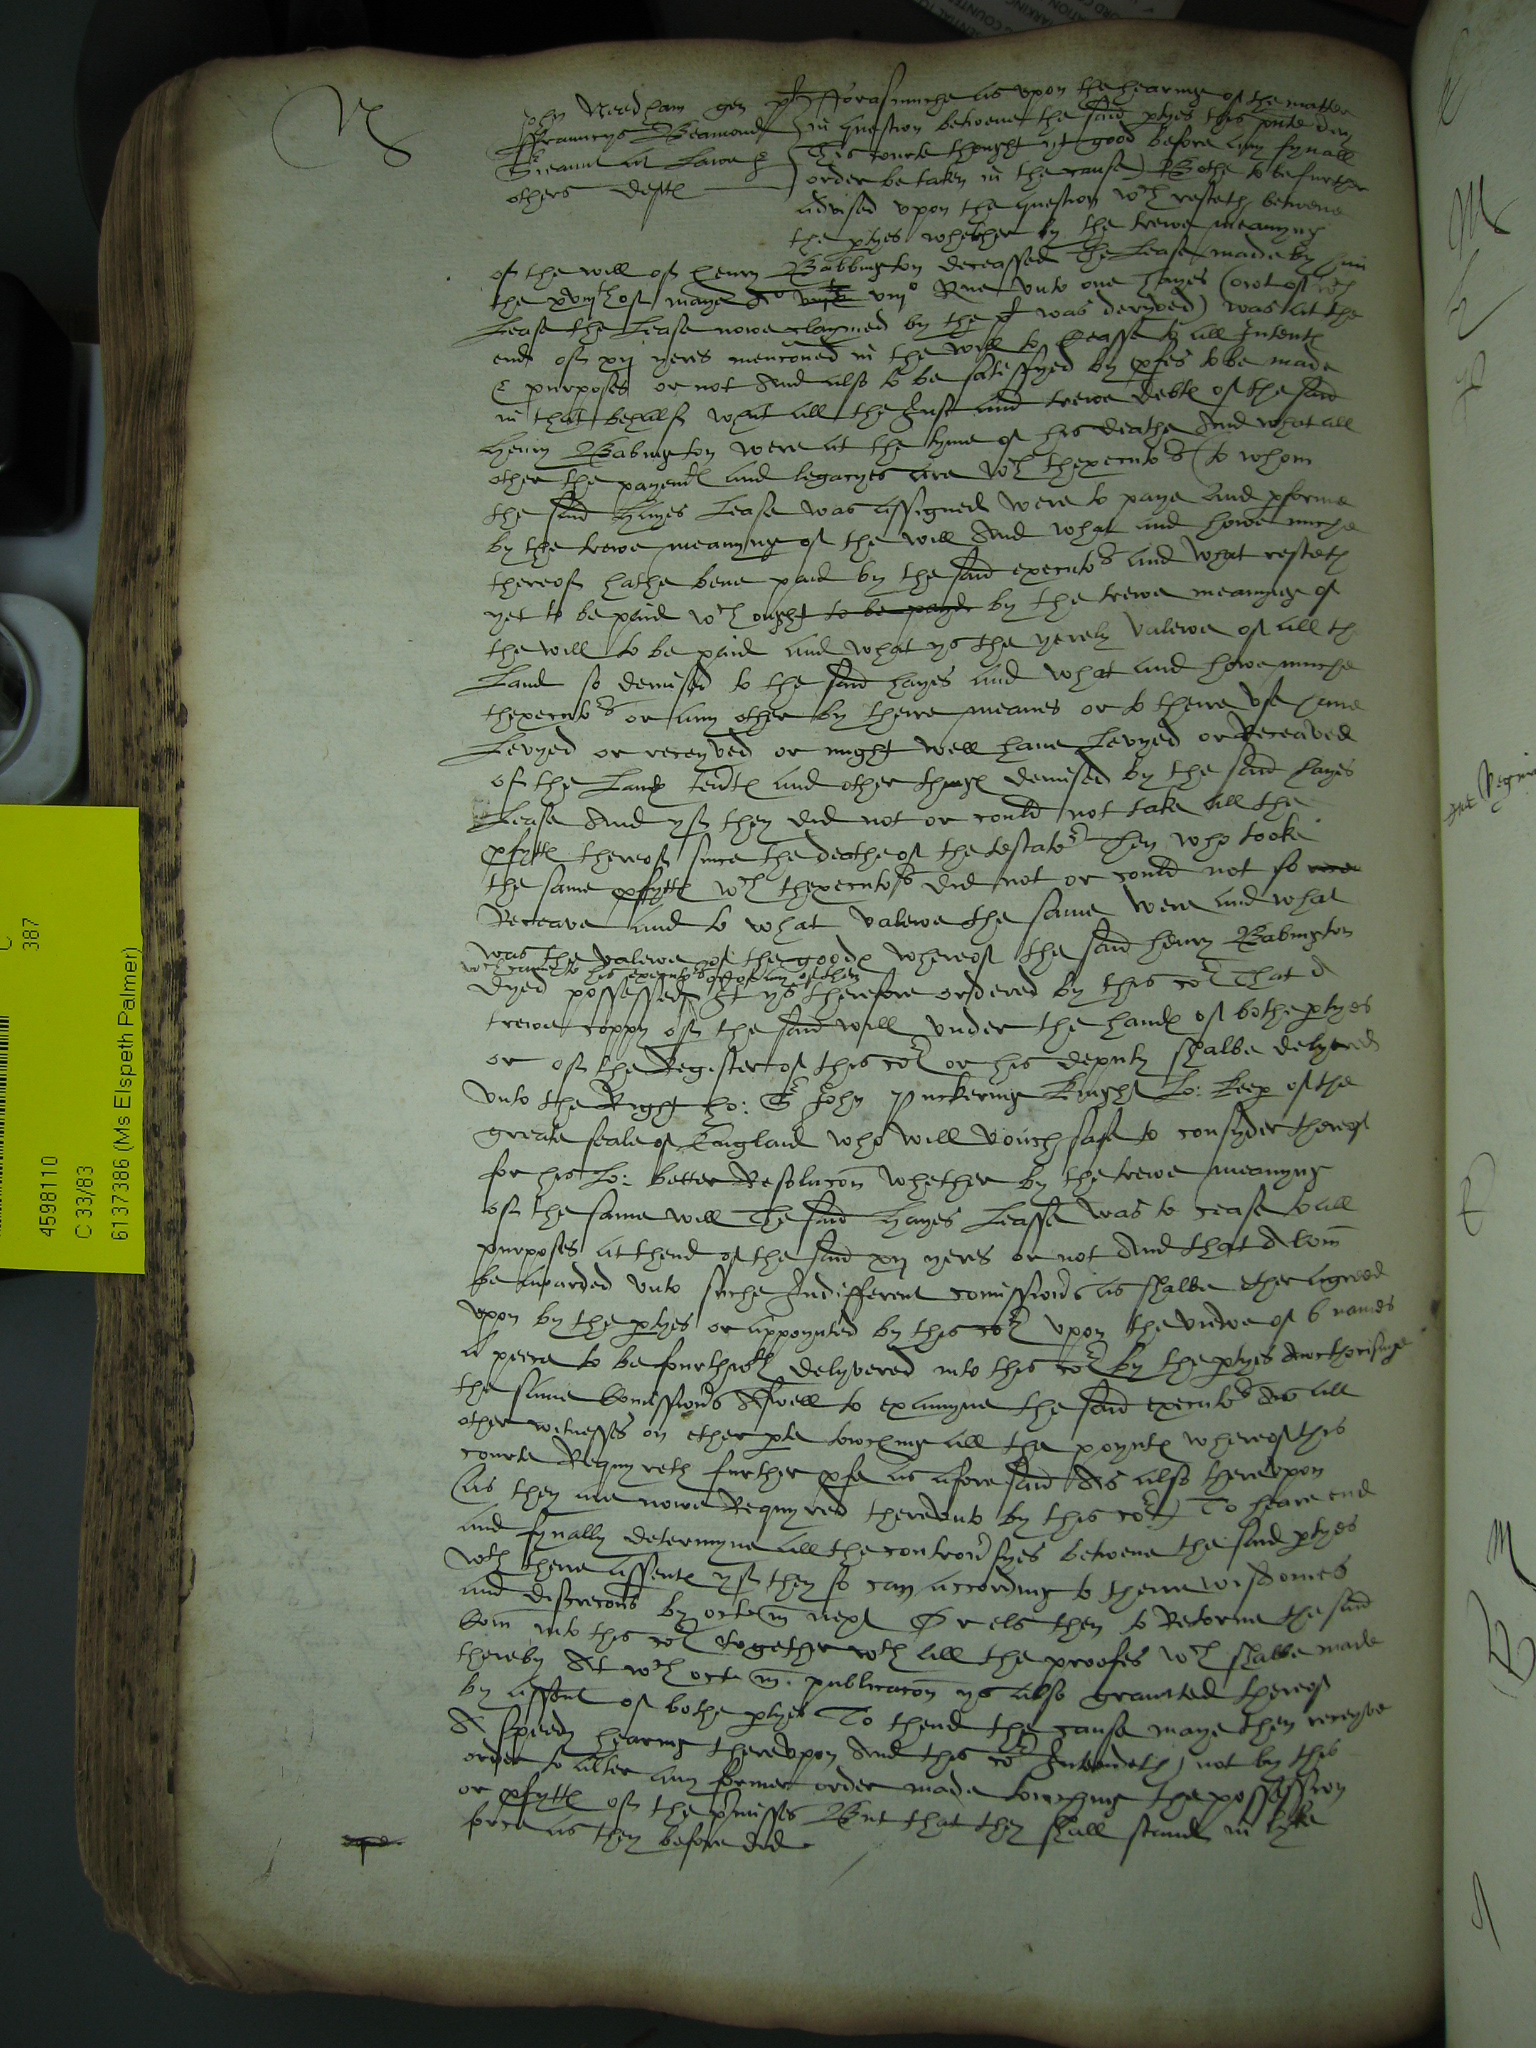 N
John Needham gen pl
Frauncys Beamond
Sieant at Lawe &
others defts
Fforasmuche as upon the hearinge of the matter
in question betwene the said ptyes this pnte day
This courte thought yt good before any fynall
order be taken in the cause) Bothe to be further
advised upon the question wch resteth betwene
the ptyes whether by the trewe meanyng
of the will of henry Babbington deceassed The Lease made by him
the xviijth of maye Ao viijo Rne unto one hayes (owt of wch
Lease the Lease nowe claymed by the pl was deryved) was at the
end of xij yeres menconed in the will to Ceasse to all Intents
& purposes or not And also to be satisfyed by pfes to be made
in that behalf what all the Just and trewe debts of the said
Henry Babington were at the tyme of his deathe And what all
other the payments and legacyes are wch thexecutors (to whom
the said Hayes Lease was assigned were to paye and pforme
by the trewe meanyng of the will And what and howe muche
thereof hathe bene paid by the said executors and what resteth
yet to be paid wch ought to be payde by the trewe meanynge of
the will to be paid and what ys the yerely valewe of all the
Land so demised to the said hayes and what and howe muche
thexecutors or any other by there meanes or to there use have
Levyed or receyved or might well have Levyed or Receaved
of the Lands tents and other things demised by the said hayes
Lease And yf they did not or could not take all the
pfytts thereof since the deathe of the testator Then who tooke
the same pfytts wch thexecutors did not or could not so
Receave and to what valewe the same were and what
was the valewe of the goods whereof the said henry Babington
wch came to his executors or of any of them
dyed possessed It ys therefore ordered by this cort That a
trewe coppy of the said will under the hands of bothe ptyes
or of the Register of this cort or his deputy shalbe delyvered
unto the Right ho: Sr John Puckering Knight Lo: Keep of the
greate seale of England who will vouchsafe to consyder thereof
for his Lo: better Resolucon whether by the trewe meanyng
of the same will The said Hayes Leasse was to cease to all
purposes at thend of the said xij yeres or not And that A Com
be awarded unto suche Indifferent comissiors as shalbe ether agreed
upon by the ptyes or appoynted by this cort upon the viewe of 6 names
a peece to be fourthwth delyvered into this cort by the ptyes Awcthorisinge
the same Comissiors Aswell to examyne the said executors As all
other witnesses on ether pte towching all the poynts whereof this
courte Requyreth further pfe as aforesaid As also thereupon
(as they are nowe Requyred thereunto by this cort) To heare end
and fynally determyne all the controvsyes betwene the said ptyes
wth there assents yf they so can according to there wisdomes
and discrecons by octo m next Or els then to Retorne the said
Com into this cort together wth all the proofes wch shalbe made
thereby At wch octo m. publicacon ys also graunted thereof
by assent of bothe ptyes To thend the cause maye then receyve
A speedy hearing thereupon And this cort Intendeth not by this
order to alter any former order made towching the possession
or pfytts of the pmisses But that they shall stand in lyke
force as they before did
C
387
4598110
C 33/83
6137386 (Ms Elspeth Palmer)